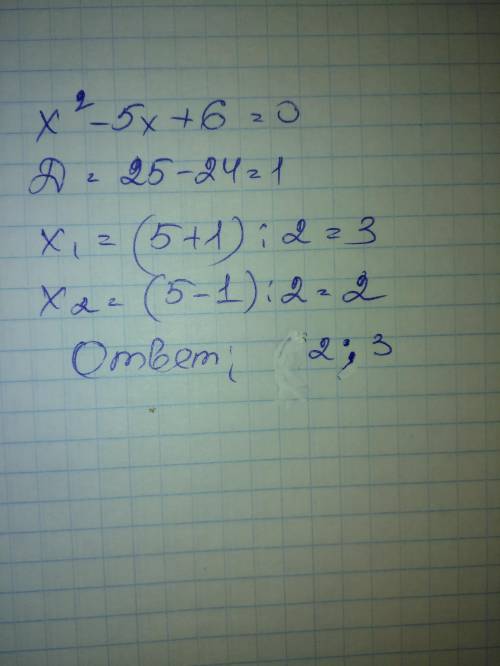 x² - 5x + 6 = 0
Д = 25 - 24 = 1
x₁ = (5+1) : 2 = 3
x₂ = (5-1) : 2 = 2
Ответ: 2; 3